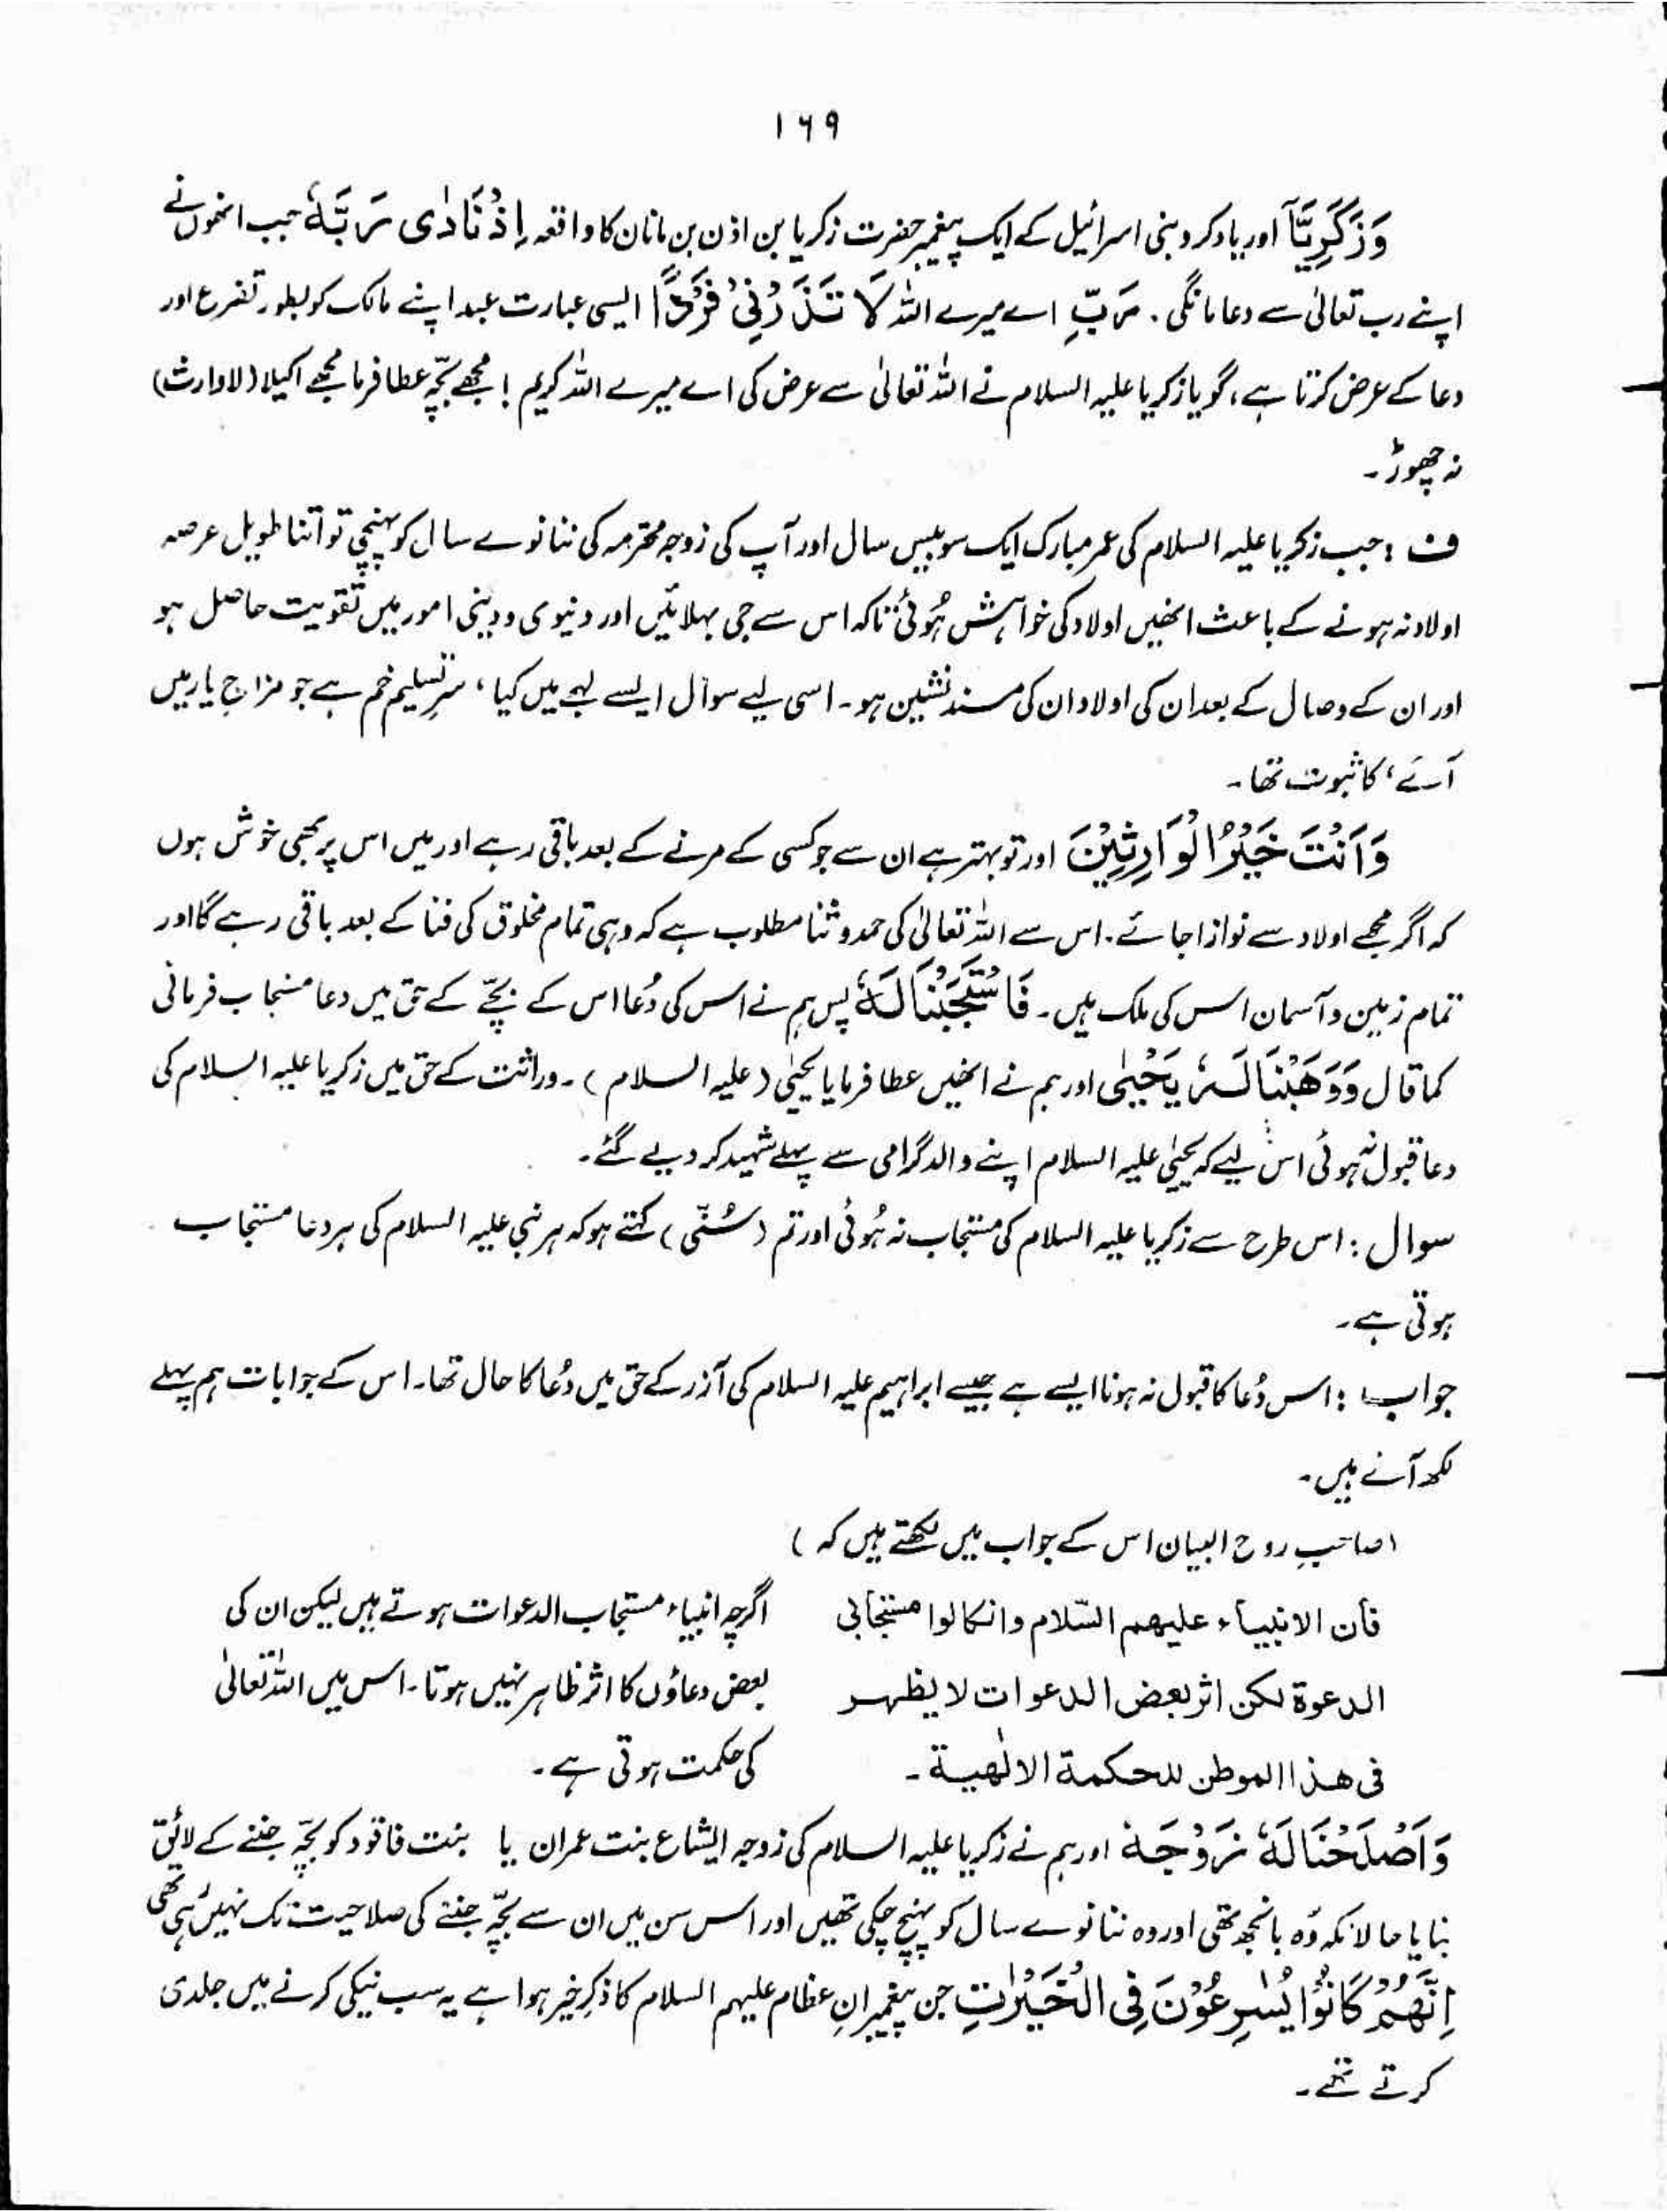 ۱۶۹
وَزَكَرِيَّآ اور یاد کرو بنی اسرائیل کے ایک پیغمبر حضرت زکریا بن اذن بن ماثان کا واقعہ اِذْ نَادٰى رَبَّهٗ جب انھوں نے
اپنے رب تعالیٰ سے دعا مانگی . رَبِّ اے میرے اللہ لَا تَذَرْنِيْ فَرْدًا ایسی عبارت عبد اپنے مالک کو بطور تضرع اور
دعا کے عرض کرتا ہے ، گویا زکریا علیہ السلام نے اللہ تعالیٰ سے عرض کی اے میرے اللہ کریم ! مجھے بچّہ عطا فرما مجھے اکیلا (لاوارث)
نہ چھوڑ ۔
ف : جب زکریا علیہ السلام کی عمر مبارک ایک سو بیس سال اور آپ کی زوجہ محترمہ کی ننانوے سال کو پہنچی تو اتنا طویل عرصہ
اولاد نہ ہونے کے باعث انھیں اولاد کی خواہش ہُوئی تاکہ اس سے جی بہلائیں اور دنیوی و دینی امور میں تقویت حاصل ہو
اور ان کے وصال کے بعد ان کی اولاد ان کی مسند نشین ہو ۔ اسی لیے سوال ایسے لہجے میں کیا ، سرِ تسلیم خم ہے جو مزاجِ یار میں
آئے ، کا ثبوت تھا ۔
وَاَنْتَ خَيْرُ الْوَارِثِيْنَ اور تو بہتر ہے ان سے جو کسی کے مرنے کے بعد باقی رہے اور میں اس پر بھی خوش ہوں
کہ اگر مجھے اولاد سے نوازا جائے . اس سے اللہ تعالیٰ کی حمد و ثنا مطلوب ہے کہ وہی تمام مخلوق کی فنا کے بعد باقی رہے گا اور
تمام زمین و آسمان اس کی ملک ہیں ۔ فَاسْتَجَبْنَا لَهٗ پس ہم نے اس کی دُعا اس کے بچّے کے حق میں دعا مستجاب فرمائی
کما قال وَوَهَبْنَا لَهٗ يَحْيٰى اور ہم نے انھیں عطا فرمایا یحییٰ (علیہ السلام) ۔ وراثت کے حق میں زکریا علیہ السلام کی
دعا قبول نہ ہوئی اس لیے کہ یحییٰ علیہ السلام اپنے والد گرامی سے پہلے شہید کر دیے گئے ۔
سوال : اس طرح سے زکریا علیہ السلام کی مستجاب نہ ہُوئی اور تم (سُنّی) کہتے ہو کہ ہر نبی علیہ السلام کی ہر دعا مستجاب
ہوتی ہے ۔
جواب : اس دُعا کا قبول نہ ہونا ایسے ہے جیسے ابراہیم علیہ السلام کی آزر کے حق میں دُعا کا حال تھا ۔ اس کے جوابات ہم پہلے
لکھ آئے ہیں ۔
(صاحبِ روح البیان اس کے جواب میں لکھتے ہیں کہ )
فأن الانبیاء علیهم السّلام وانکالوا مستجابی
الدعوة لکن اثر بعض الدعوات لا یظهر
فی هذا الموطن للحکمة الالٰهیة ۔
اگرچہ انبیاء مستجاب الدعوات ہوتے ہیں لیکن ان کی
بعض دعاؤں کا اثر ظاہر نہیں ہوتا ۔ اس میں اللہ تعالیٰ
کی حکمت ہوتی ہے ۔
وَاَصْلَحْنَا لَهٗ زَوْجَهٗ اور ہم نے زکریا علیہ السلام کی زوجہ ایشاع بنت عمران یا بنت فاقود کو بچّہ جننے کے لائق
بنایا حالانکہ وُہ بانجھ تھی اور وہ ننانوے سال کو پہنچ چکی تھیں اور اس سن میں ان سے بچّہ جننے کی صلاحیت تک نہیں رہی تھی
اِنَّهُمْ كَانُوْا يُسٰرِعُوْنَ فِي الْخَيْرٰتِ جن پیغمبرانِ عظام علیہم السلام کا ذکرِ خیر ہوا ہے یہ سب نیکی کرنے میں جلدی
کرتے تھے ۔